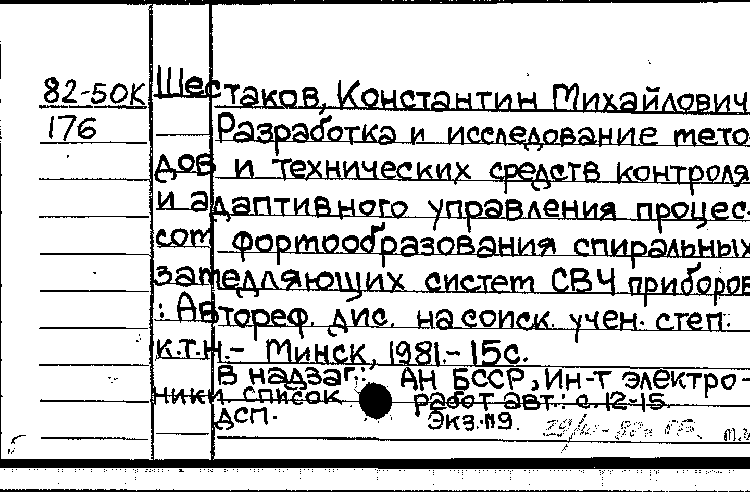 82-50К Шестаков, Константин Михайлович
176 Разработка и исследование мето-
дов и технических средств контроля
и адаптивного управления процес-
сом формообразования спиральных
замедляющих систем СВЧ приборов
: Автореф. дис. на соиск. учен. степ.
к.т.н.- Минск, 1981.- 15с.
В надзаг.: АН БССР, Ин-т электро-
ники. Список работ авт.: с. 12-15.
ДСП. Экз.№9.